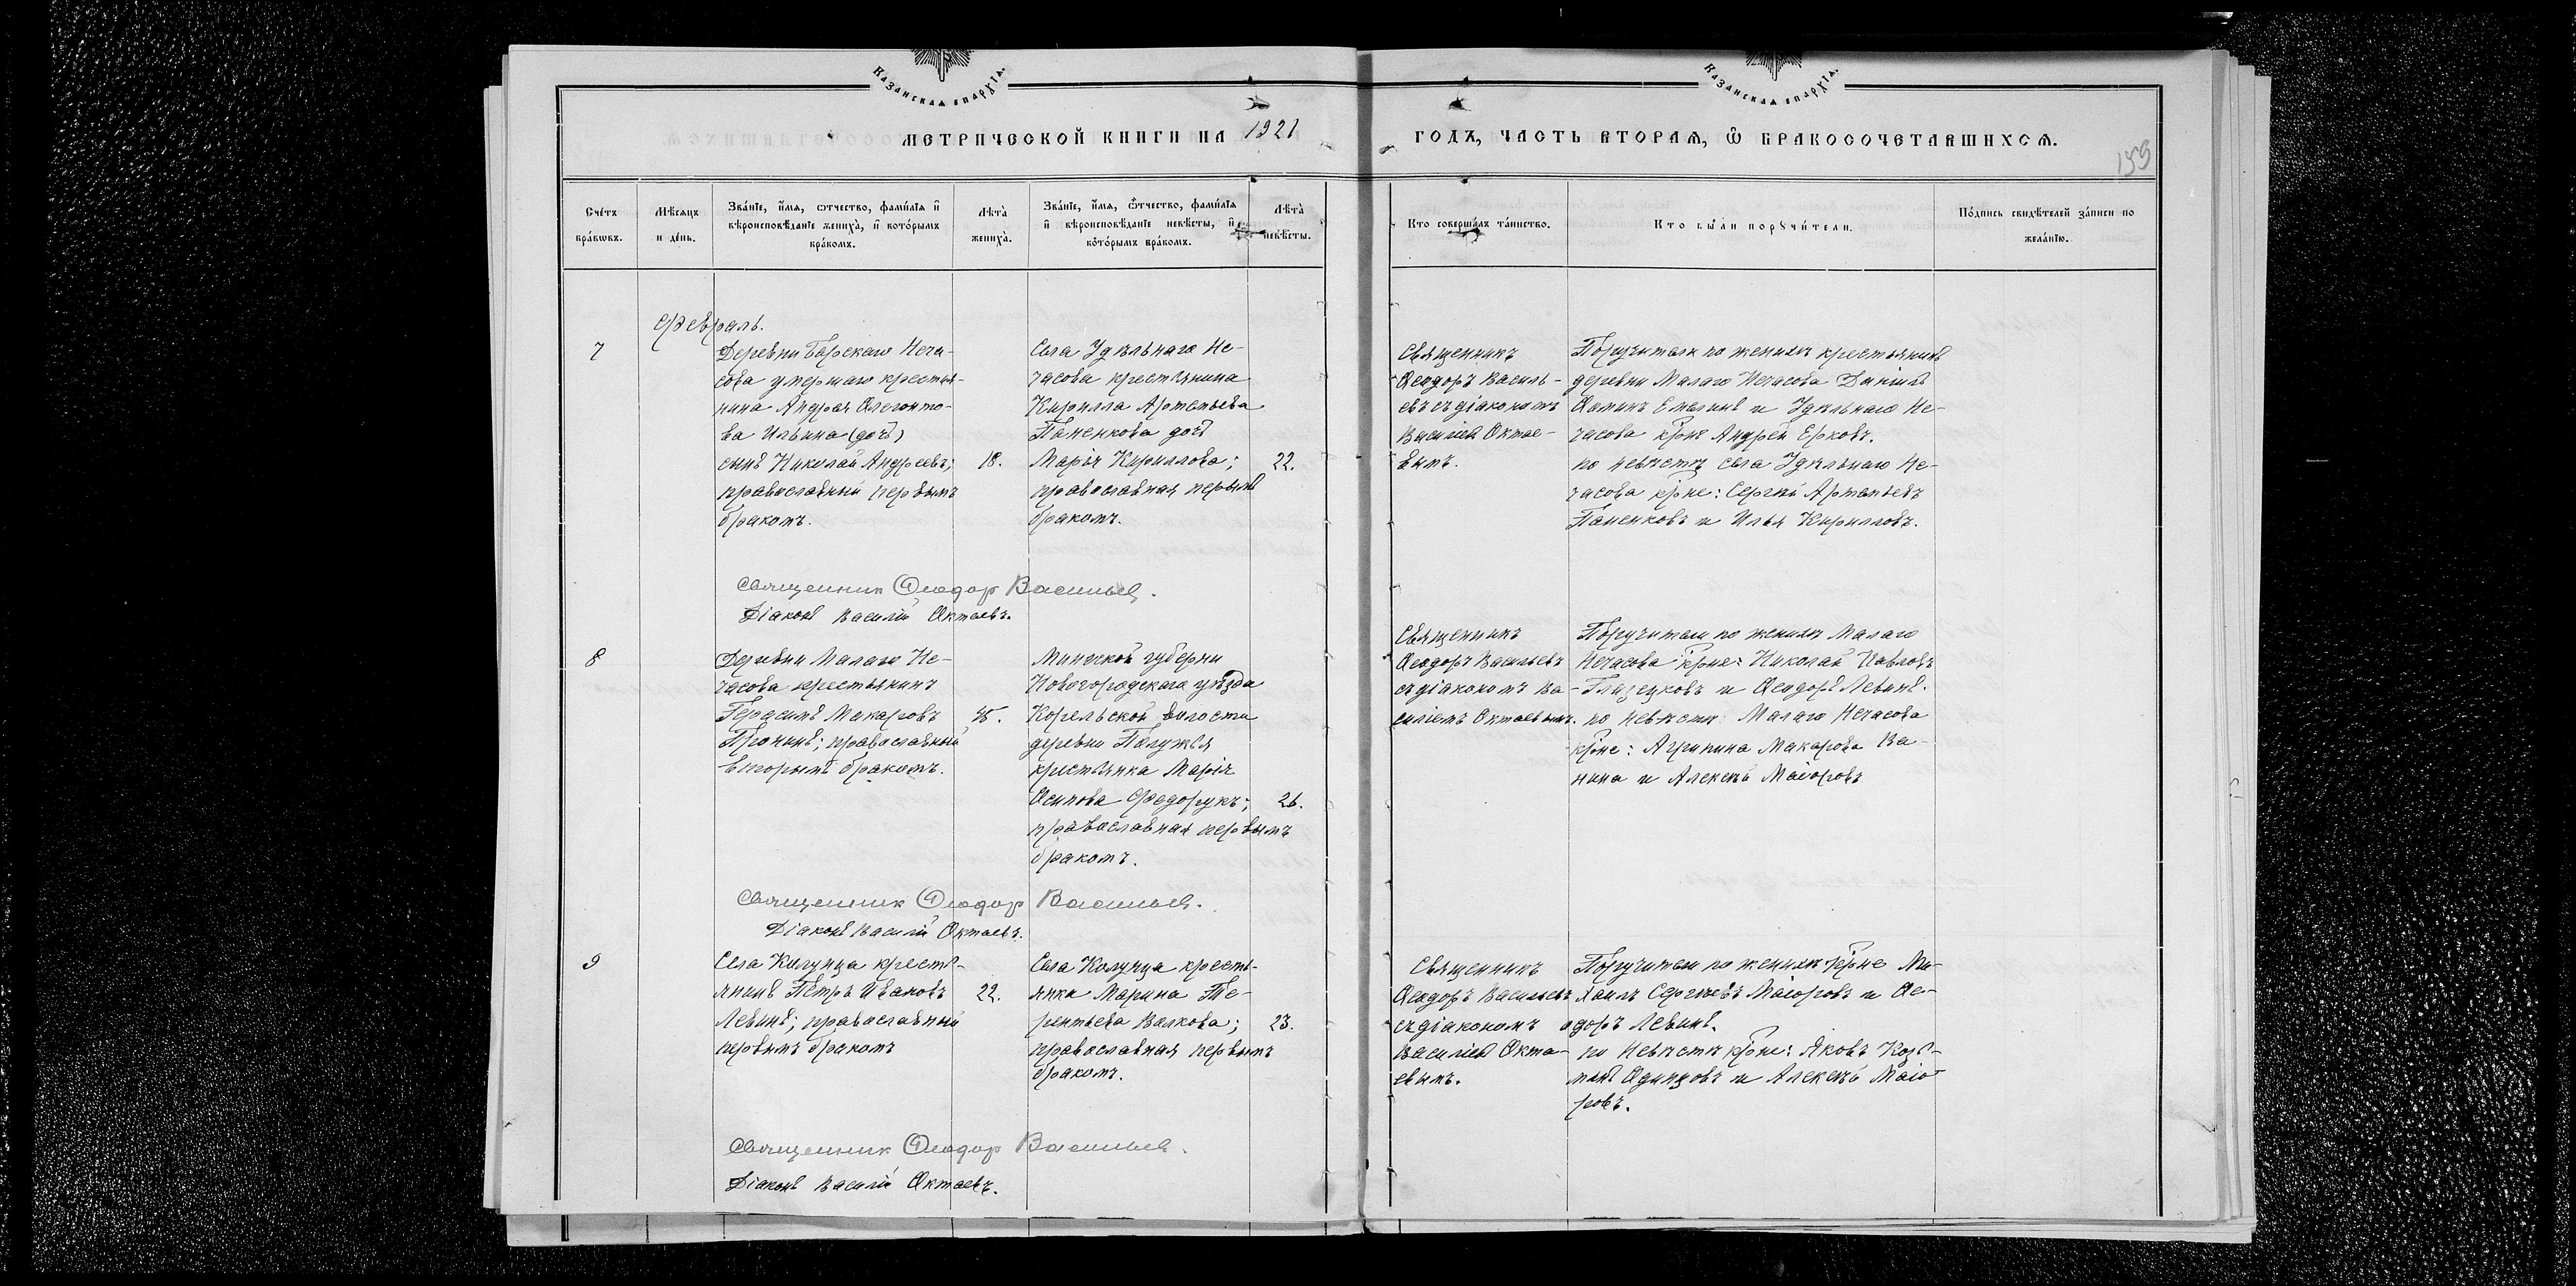 Казанская епархія.
Казанская епархія.
МЕТРИЧЕСКОЙ КНИГИ НА 1921
ГОДЪ, ЧАСТЬ ВТОРАЯ, Ѿ БРАКОСОЧЕТАВШИХСѦ.
159
Сче́тъ бра́кѡвъ.
Мѣ́сѧцъ и де́нь.
Зва́нїе, и҆́мѧ, ѻ҆́тчество, фами́лїѧ и҆ вѣроисповѣ́данїе жениха̀, и҆ кото́рымъ бра́комъ.
Лѣта̀ жениха̀.
Зва́нїе, и҆́мѧ, ѻ҆́тчество, фами́лїѧ и҆ вѣроисповѣ́данїе невѣ́сты, и҆ кото́рымъ бра́комъ.
Лѣта̀ невѣ́сты.
Кто соверша́лъ та́инство.
Кто бы́ли порꙋчи́тели.
По́дпись свидѣ́телей за́писи по жела́нїю.
Февраль.
7
Деревни Барскаго Неча-
сова умершаго крестья-
нина Андрея
ва Ильина (доч)
сынъ Николай Андреевъ;
православный первымъ
бракомъ.
18.
Села Удѣльнаго Не-
часова крестьянина
Кирилла Артемьева
Паненкова доч
Марія Кириллова;
православная первымъ
бракомъ.
22.
Священникъ
Ѳеодоръ Василь-
евъ съ діакономъ
Василіемъ Октае-
вымъ.
Поручители по женихѣ крестьянинъ
деревни Малаго Нечасова Даніилъ
Емелинъ и Удѣльнаго Не-
часова крне Андрей Ерковъ.
по невѣстѣ села Удѣльнаго Не-
часова крне: Сергѣй Артемьевъ
Паненковъ и Илья Кирилловъ.
Священник Ѳеодор Васильев.
Діаконъ Василій Октаевъ.
8
Деревни Малаго Не-
часова крестьянинъ
Герасимъ Макаровъ
Пронинъ; православный
вторымъ бракомъ.
Минской губерни
Новогородскаго уѣзда
Корельской волости
деревни Полужья
крестьянка Марія
Осипова Федорукъ;
православная первымъ
бракомъ.
26.
Священникъ
Ѳеодоръ Васильевъ
съ діакономъ Ва-
силіемъ Октаевымъ.
Поручители по женихѣ Малаго
Нечасова крне: Николай Павловъ
Глазецковъ и Ѳеодоръ Левинъ.
по невѣстѣ Малаго Нечасова
крне: Агрипина Макарова Ва-
нина и Алексѣй Маіоровъ
Священник Ѳеодор Васильев.
Діаконъ Василій Октаевъ.
9
Села Колунца кресть-
янинъ Петръ Ивановъ
Левинъ; православный
первымъ бракомъ
22.
Села Колунца кресть-
янка Марина Те-
рентьева Валкова;
православная первымъ
бракомъ.
23.
Священникъ
Ѳеодоръ Васильевъ
съ діакономъ
Василіемъ Окта-
евымъ.
Поручители по женихѣ крне Ми-
хаилъ Сергѣевъ Маіоровъ и Ѳе-
одоръ Левинъ.
по невѣстѣ крне: Яковъ Козь-
минъ Одинцовъ и Алексѣй Маіо-
ровъ.
Священник Ѳеодор Васильев.
Діаконъ Василій Октаевъ.